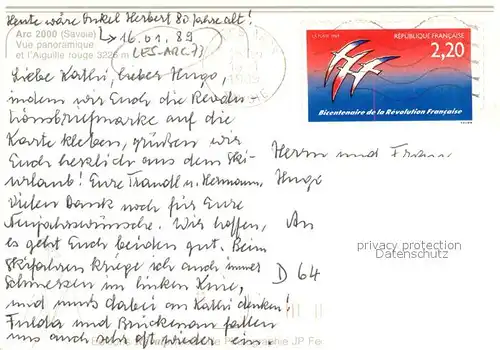 Heute wäre Onkel Herbert 80 Jahre alt!
Arc 2000 (Savoie)
Vue panoramique
et l'Aiguille rouge 3226 m
↳ 16.01.89
(LES-ARC 73)
Liebe Kathi, lieber Hugo,
indem wir Euch die Revolu
tionsbriefmarke auf die
Karte kleben, grüßen wir
Euch herzlich aus dem Ski-
urlaub! Eure Traudl u. Hermann.
Vielen Dank noch für Eure
Neujahrswünsche. Wir hoffen,
es geht Euch beiden gut. Beim
Skifahren kriege ich auch immer
Schmerzen im linken Knie,
und muß dabei an Kathi denken!
Fulda und Brückenau fallen
uns auch sehr oft wieder ein.
RÉPUBLIQUE FRANÇAISE
2,20
Bicentenaire de la Révolution Française
Herrn und Frau
Hugo
An
D 64
privacy protection
Datenschutz
Photographie JP Fe